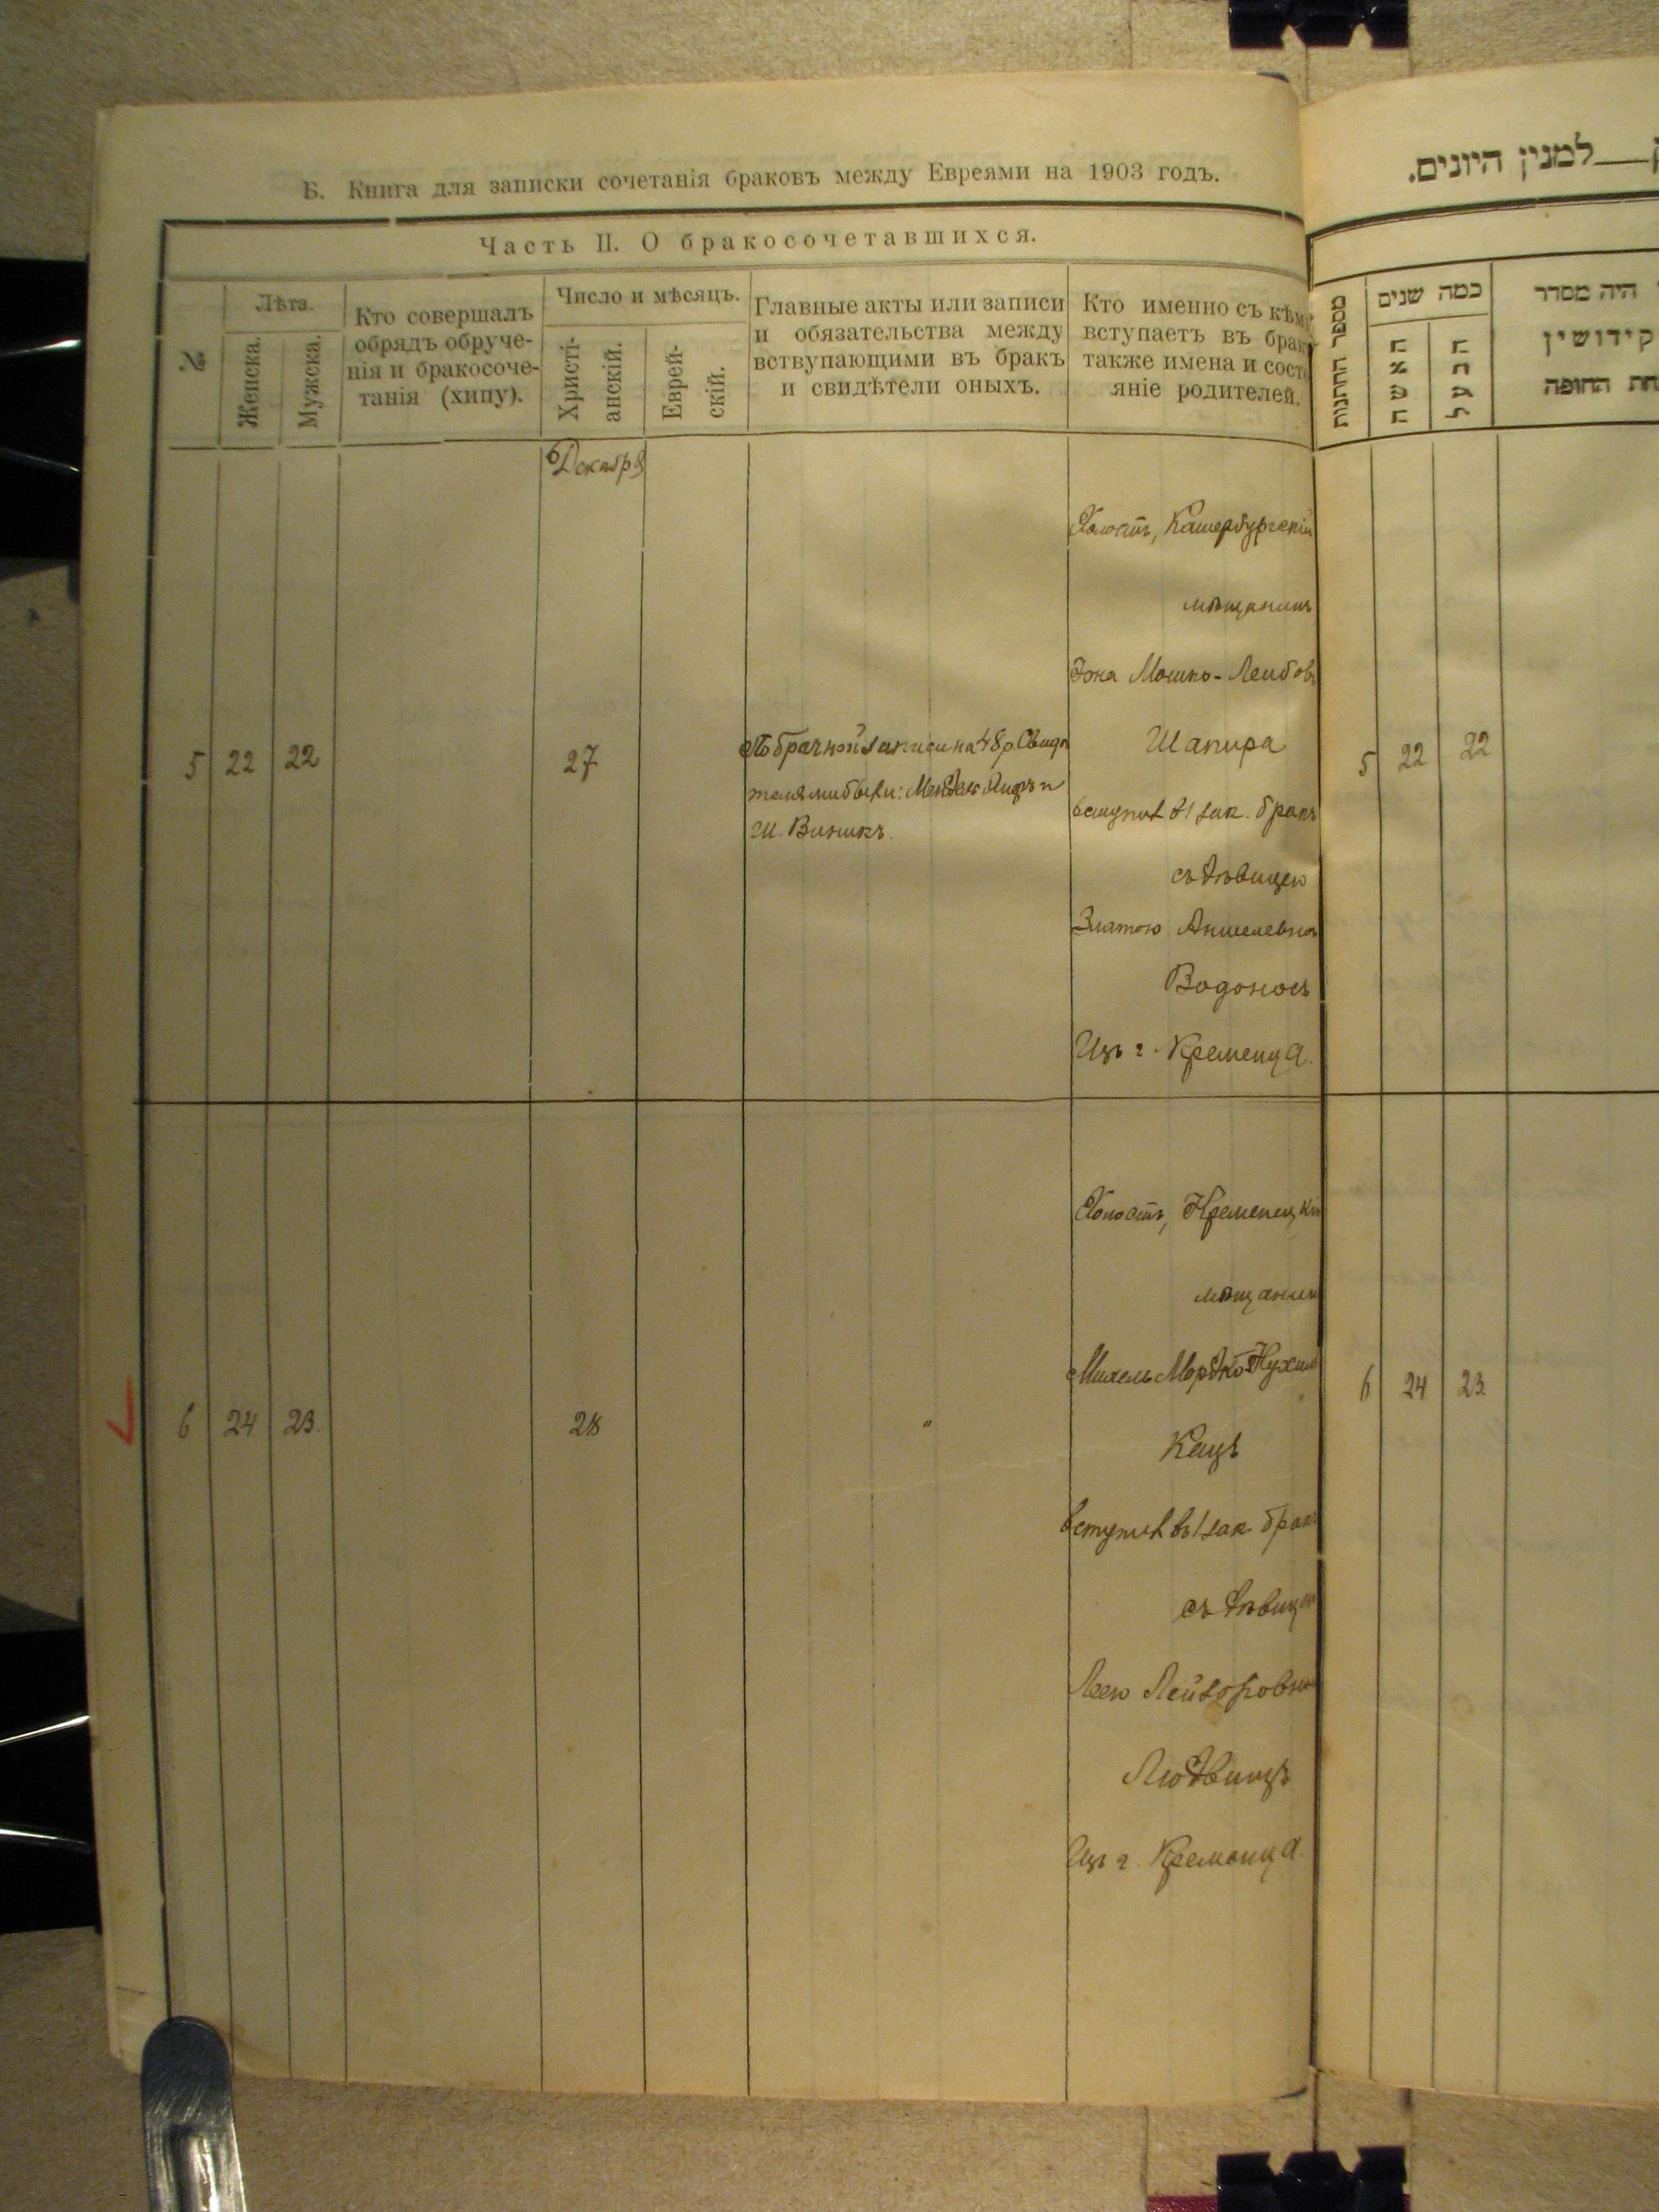 Б. Книга для записки сочетанія браковъ между Евреями на 1903 годъ.
Часть II. О бракосочетавшихся.
№
Лѣта.
Женска.
Мужска.
Кто совершалъ
обрядъ обруче-
нія и бракосоче-
танія (хипу).
Число и мѣсяцъ.
Христі-
анскій.
Еврей-
скій.
Главные акты или записи
и обязательства между
вствупающими въ бракъ
и свидѣтели оныхъ.
Кто именно съ кѣмъ
вступаетъ въ бракъ
также имена и состо
яніе родителей.
Декабря
5 22 22 27
По брачной записи на 48 р. Свидѣ
телями были:
Ш. Виникъ.
Холостъ,
мѣщанинъ
Іона Мошко-Лейбовъ
Шапира
вступил в 1 зак. бракъ
съ дѣвицею
Златою Аншелевною
Водоносъ
Изъ г. Кременца.
6 24 23. 28 "
Холостъ, Кременецкі
мѣщанин
Михель Мордко-Нухим
Кацъ
вступил въ 1 зак. бракъ
съ дѣвицею
Леею Лейзоровною
Людвицъ
Изъ г. Кременца.
למנין היונים.
מספר החתנות
כמה שנים
האשה
הבעל
היה מסדר
קידושין
החופה
5 22 22
6 24 23.